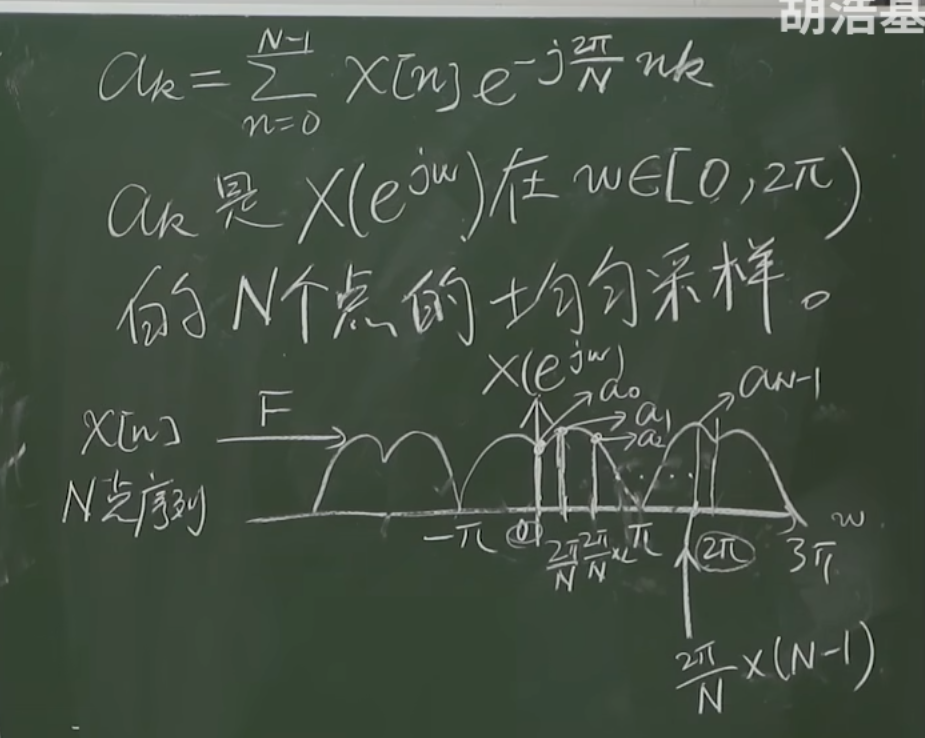 胡浩基
a_k = \sum_{n=0}^{N-1} x[n] e^{-j\frac{2π}{N}nk}
a_k 是 X(e^{jw}) 在 w∈[0,2π)
的N个点的均匀采样。
X(e^{jw})
a_0
a_1
a_2
a_{N-1}
x[n]
F
N点序列
-π 0 2π/N 2π/N×2 π 2π 3π w
2π/N ×(N-1)